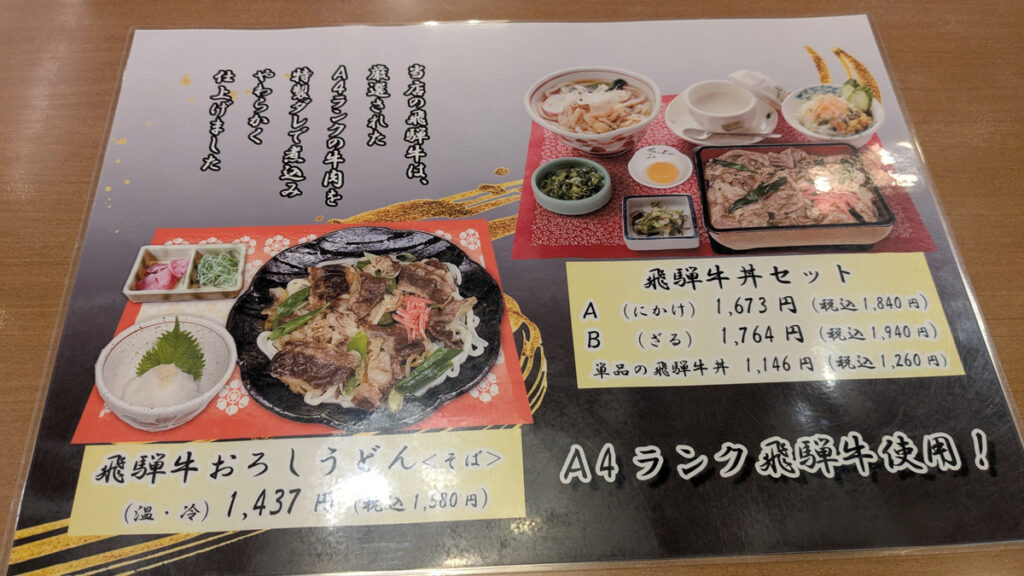 当店の飛騨牛は、
厳選された
A4ランクの牛肉を
特製ダレで煮込み
やわらかく
仕上げました
飛騨牛丼セット
A (にかけ) 1,673円 (税込1,840円)
B (ざる) 1,764円 (税込1,940円)
単品の飛騨牛丼 1,146円 (税込1,260円)
飛騨牛おろしうどん<そば>
(温・冷) 1,437円 (税込1,580円)
A4ランク飛騨牛使用!